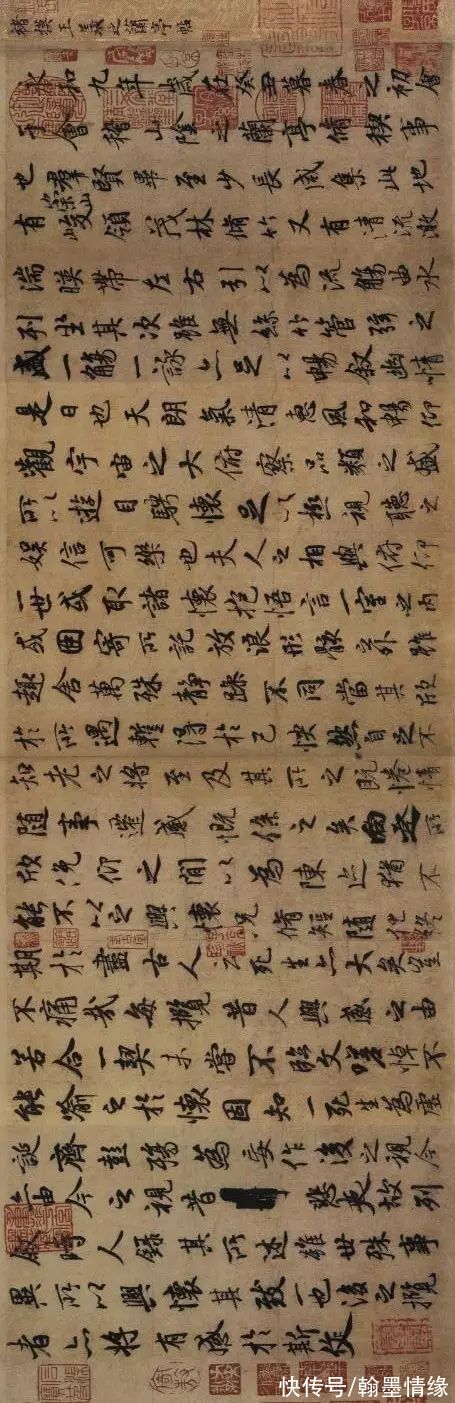 褚模王羲之蘭亭帖
永和九年歲在癸丑暮春之初會
于會稽山陰之蘭亭脩稧事
也羣賢畢至少長咸集此地
有崇山峻領茂林脩竹又有清流激
湍暎帶左右引以為流觴曲水
列坐其次雖無絲竹管弦之
盛一觴一詠亦足以暢叙幽情
是日也天朗氣清惠風和暢仰
觀宇宙之大俯察品類之盛
所以遊目騁懷足以極視聽之
娛信可樂也夫人之相與俯仰
一世或取諸懷抱悟言一室之內
或因寄所託放浪形骸之外雖
趣舍萬殊靜躁不同當其欣
於所遇暫得於己怏然自足不
知老之將至及其所之既惓情
隨事遷感慨係之矣向之所
欣俛仰之閒以為陳迹猶不
能不以之興懷況脩短隨化終
期於盡古人云死生亦大矣豈
不痛哉每攬昔人興感之由
若合一契未嘗不臨文嗟悼不
能喻之於懷固知一死生為虛
誕齊彭殤為妄作後之視今
亦由今之視昔悲夫故列
敘時人錄其所述雖世殊事
異所以興懷其致一也後之攬
者亦將有感於斯文
快传号/翰墨情缘